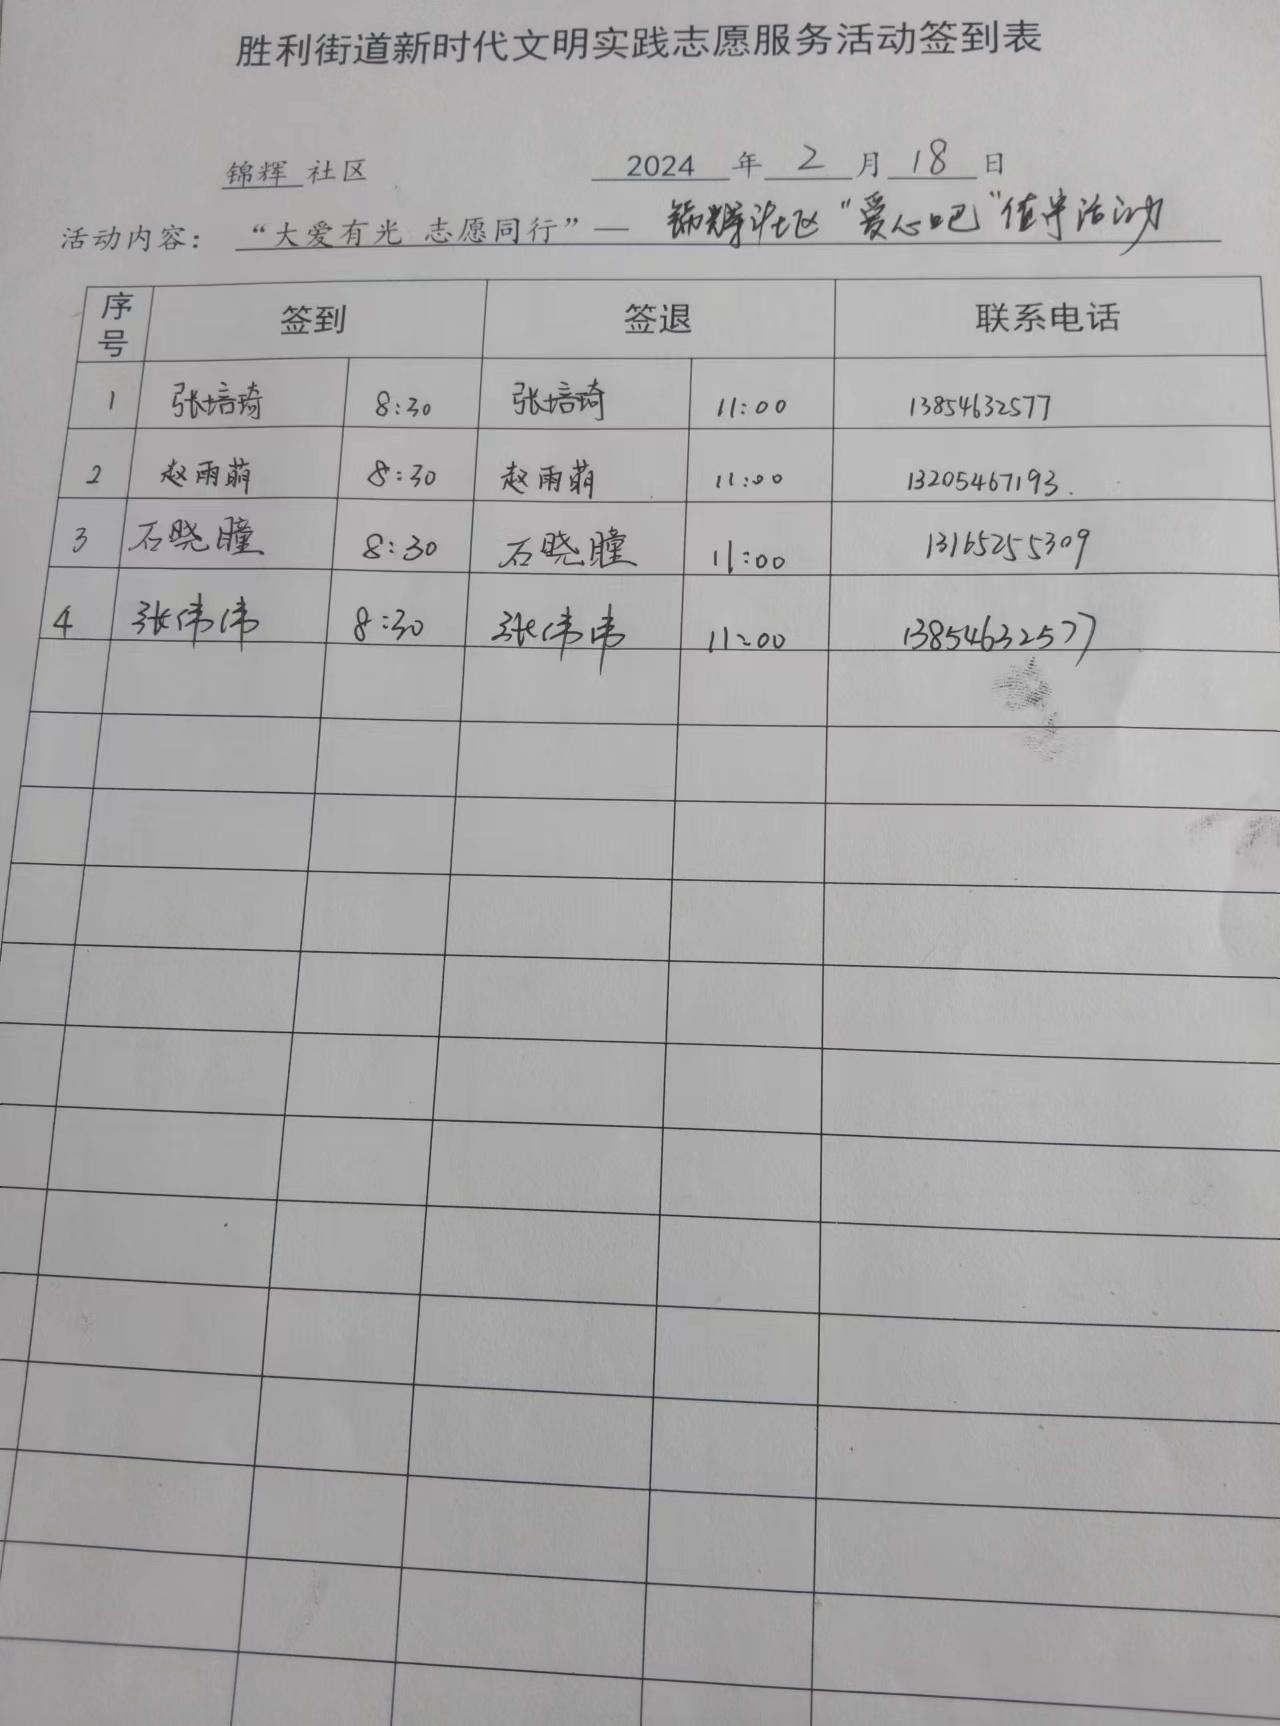 胜利街道新时代文明实践志愿服务活动签到表
锦辉 社区 2024 年 2 月 18 日
活动内容： “大爱有光 志愿同行”— 锦辉社区“爱心吧”值守活动
序号 签到 签退 联系电话
1 张培琦 8:30 张培琦 11:00 13854632577
2 赵雨萌 8:30 赵雨萌 11:00 13205467193.
3 石晓瞳 8:30 石晓瞳 11:00 13165255309
4 张伟伟 8:30 张伟伟 11:00 13854632577